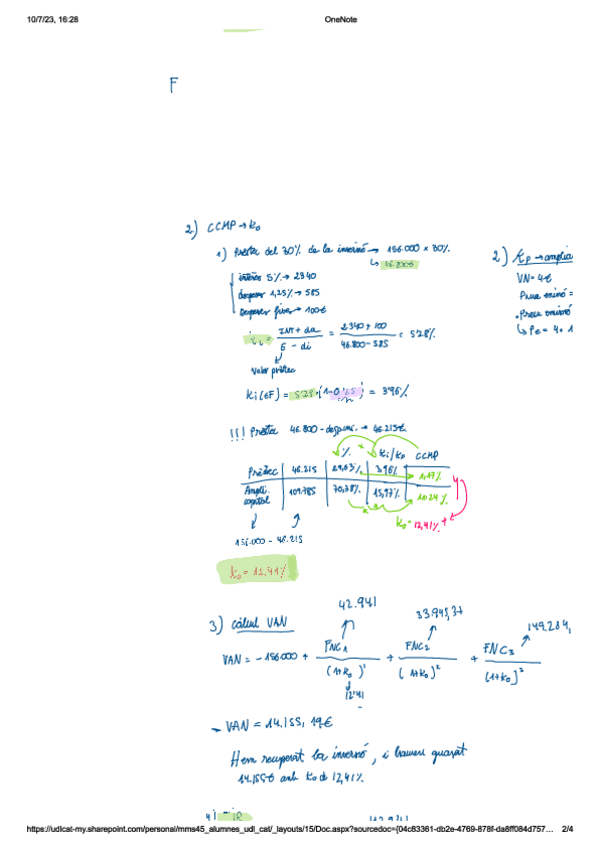 10/7/23, 16:28
OneNote
F
2) CCMP → Ko
1) Préstec del 30% de la inversió → 156.000 x 30%.
↳ 46.800€
interès 5% → 2340
despeses 1,25% → 585
Despeses fixes → 100€
= INT + da / E - di = 2340 + 100 / 46.800 - 585 = 5'28%
Valor préstec
Ki (dF) = 5'28 · (1-0'25) = 3'96%
!!! Préstec 46.800 - despeses. → 46.215€.
% Ki/Kp CCMP
Préstec 46.215 29,63% 3,96% 1,17%
Ampli. capital 109.785 70,38% 15,97% 11,24%
Ko = 12,41%
156.000 - 46.215
Ko = 12,41%
2) Kp → amplia
VN = 4€
Prima emisió =
· Preu emisió
↳ Pe = 4 · 1
3) càlcul VAN
42.941
33.945,37
149.284,
VAN = -156.000 + FNC1 / (1+Ko)¹ + FNC2 / (1+Ko)² + FNC3 / (1+Ko)³
12'41
- VAN = 14.155,19€
Hem recuperat la inversió, i haurem guanyat
14.155€ amb Ko de 12,41%.
4) TIR
https://udlcat-my.sharepoint.com/personal/mms45_alumnes_udl_cat/_layouts/15/Doc.aspx?sourcedoc={04c83361-db2e-4769-878f-da8ff084d757…
2/4